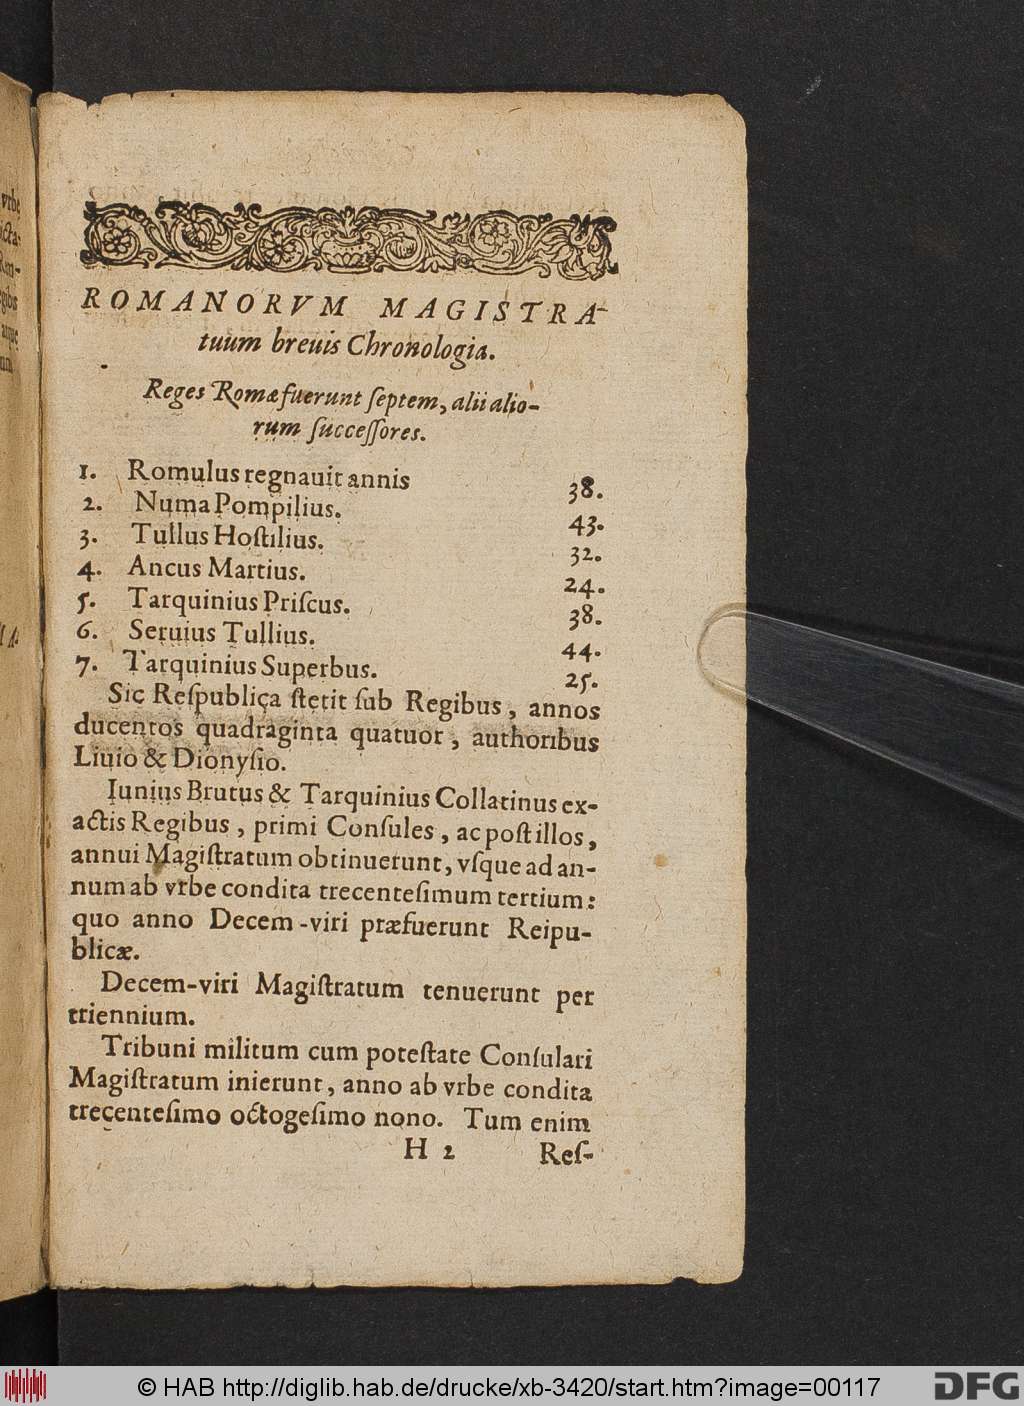 vrbe
ROMANORVM MAGISTRA-
tuum breuis Chronologia.
Reges Romæ fuerunt ſeptem, alii alio-
rum ſucceſſores.
1. Romulus regnauit annis 38.
2. Numa Pompilius. 43.
3. Tullus Hoſtilius. 32.
4. Ancus Martius. 24.
5. Tarquinius Priſcus. 38.
6. Seruius Tullius. 44.
7. Tarquinius Superbus. 25.
Sic Reſpublica ſtetit ſub Regibus, annos
ducentos quadraginta quatuor, authoribus
Liuio & Dionyſio.
Iunius Brutus & Tarquinius Collatinus ex-
actis Regibus, primi Conſules, ac poſt illos,
annui Magiſtratum obtinuerunt, vſque ad an-
num ab vrbe condita trecenteſimum tertium:
quo anno Decem-viri præfuerunt Reipu-
blicæ.
Decem-viri Magiſtratum tenuerunt per
triennium.
Tribuni militum cum poteſtate Conſulari
Magiſtratum inierunt, anno ab vrbe condita
trecenteſimo octogeſimo nono. Tum enim
H 2 Reſ-
© HAB http://diglib.hab.de/drucke/xb-3420/start.htm?image=00117
DFG